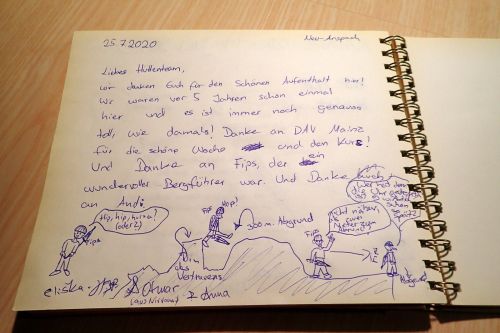 25.7.2020
Neu-Anspach
Liebes Hüttenteam,
wir danken Euch für den Schönen Aufenthalt hier!
Wir waren vor 5 Jahren schon einmal
hier und es ist immer noch genauso
toll, wie damals! Danke an DAV Mainz
für die schöne Woche und den Kurs!
Und Danke an Fips, der ein
wundervoller Bergführer war. Und Danke auch
an Andi
Hip, hip, hurra?
(oder?)
Fips
Hop!
Fips
300m Abgrund
des
Vertrauens
Fips
5m
Abgrund
eliška
Otmar
(aus Nirvana)
Anna